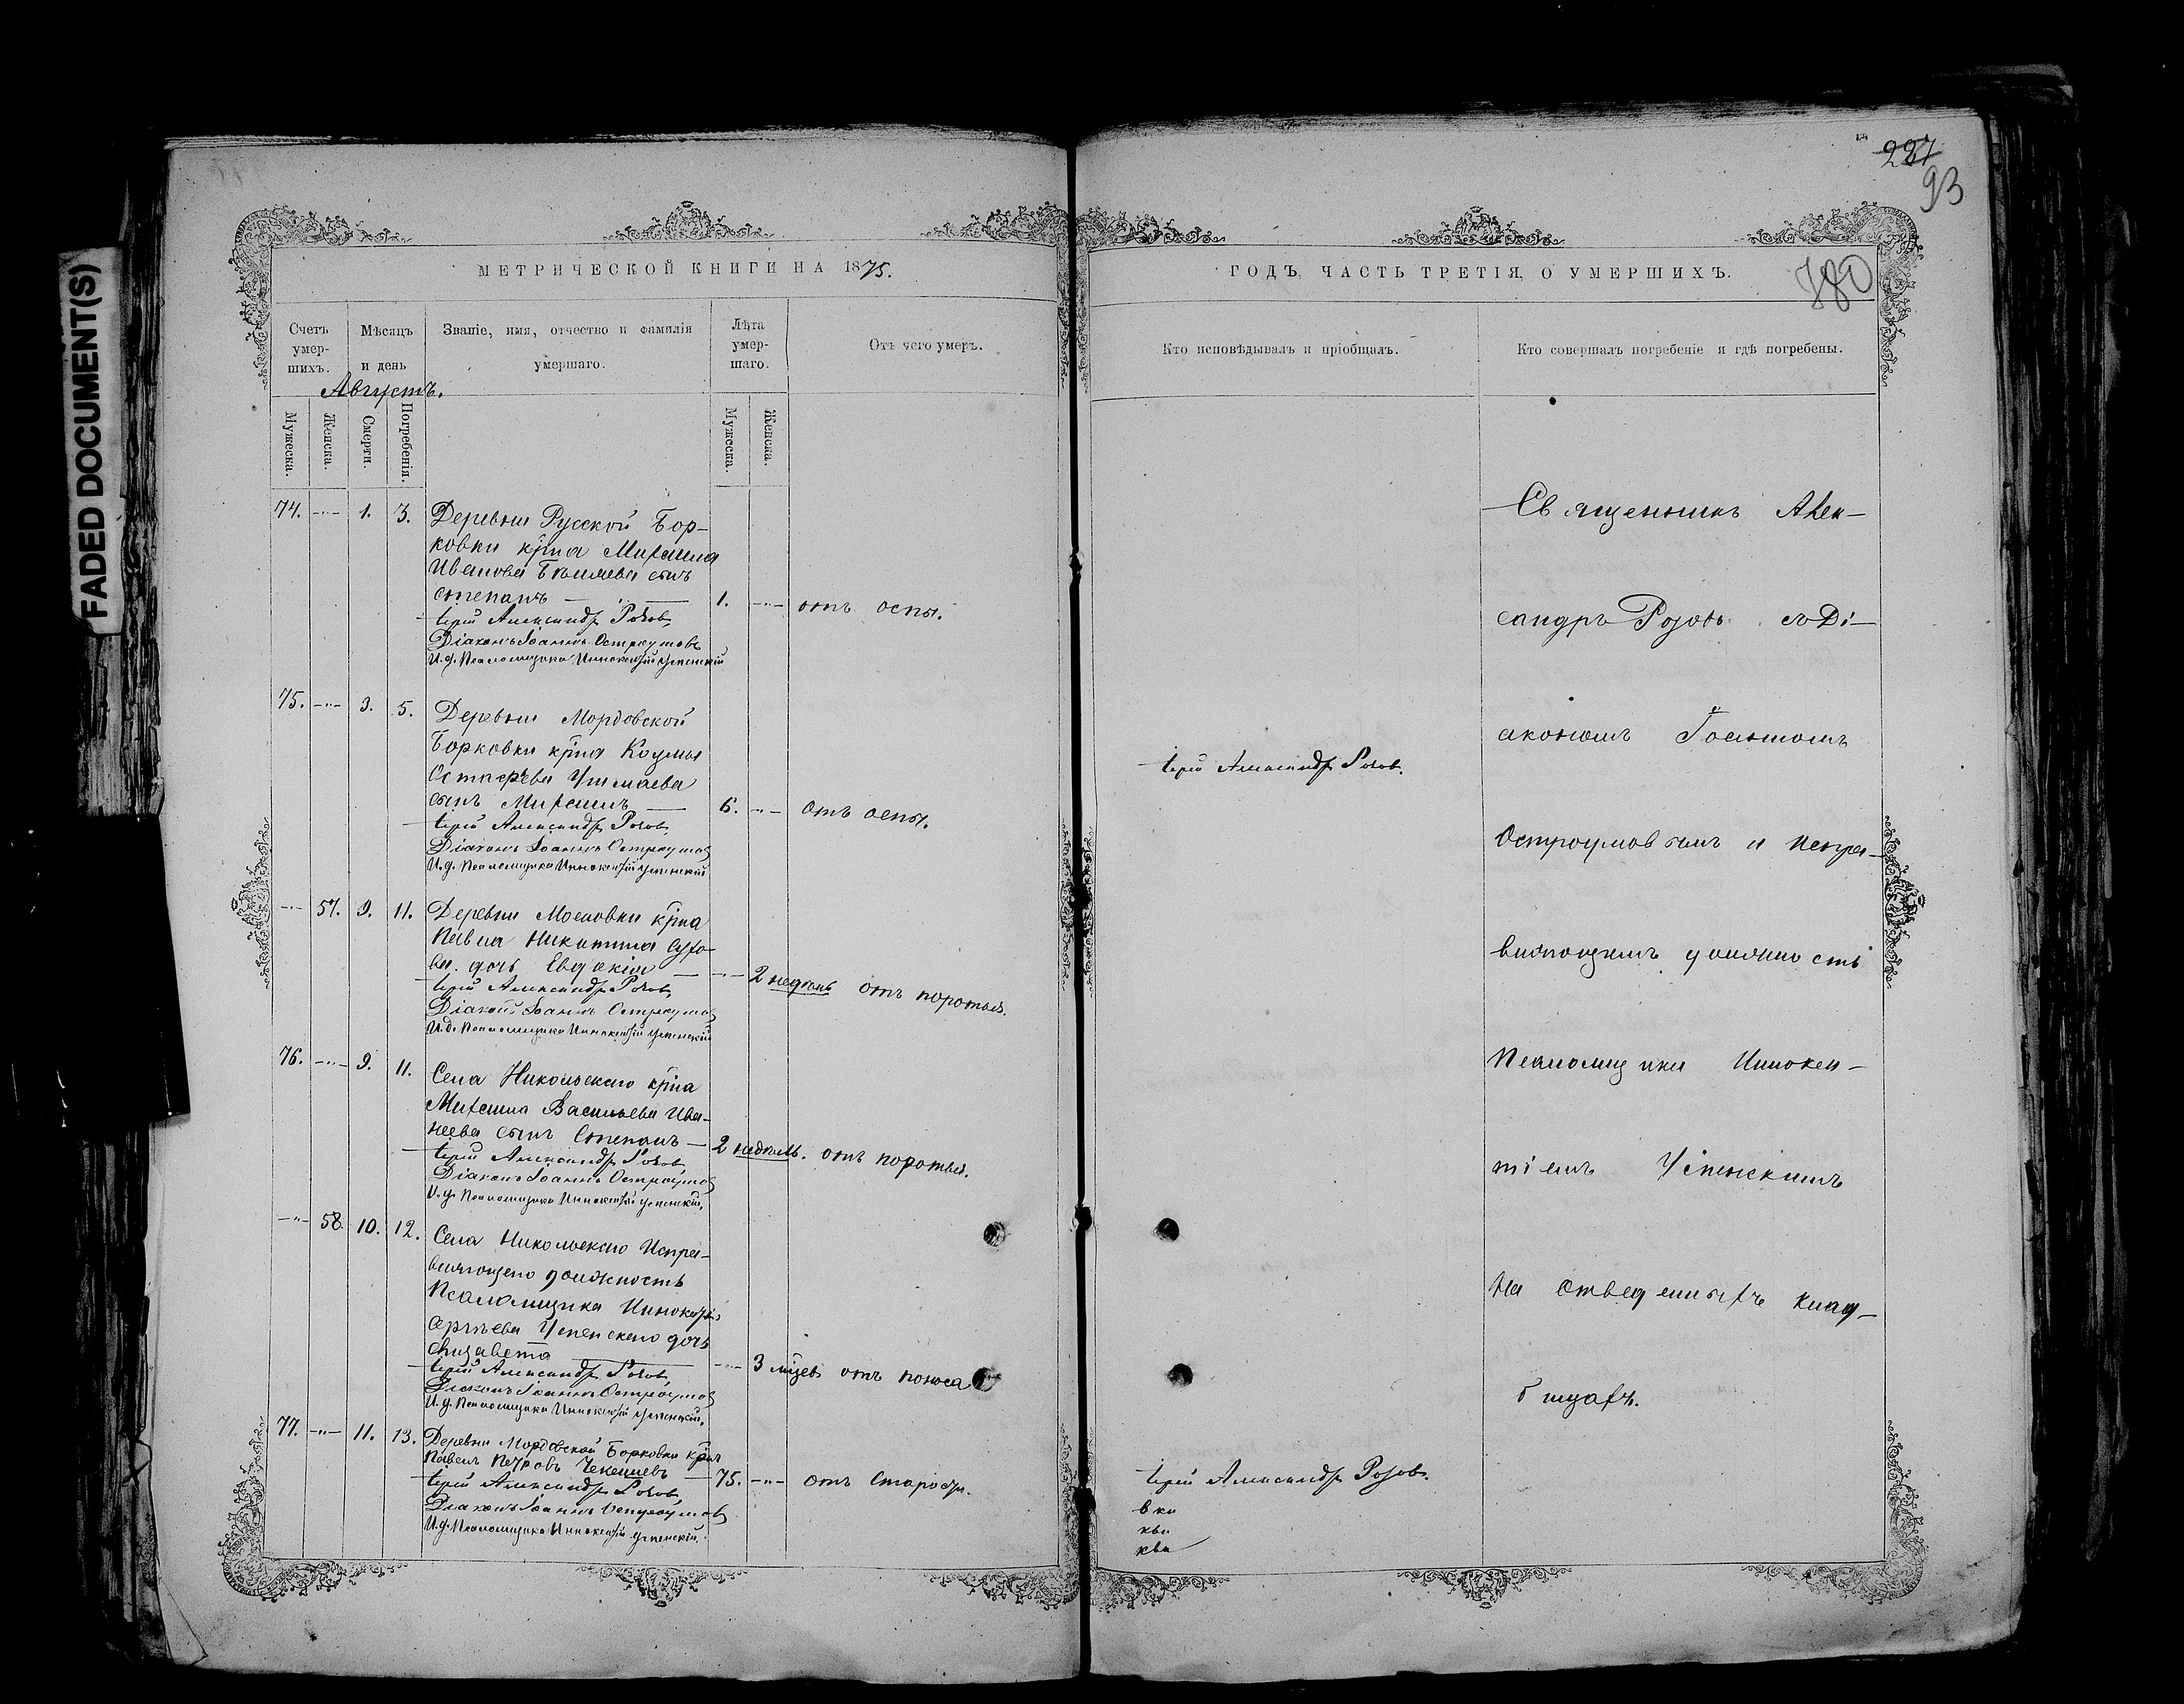 FADED DOCUMENT(S)
227
93
МЕТРИЧЕСКОЙ КНИГИ НА 1875.
Счетъ умер-шихъ.
Мѣсяцъ и день
Званіе, имя, отчество и фамилія умершаго.
Лѣта умер-шаго.
Отъ чего умеръ.
Августъ.
Мужеска.
Женска.
Смерти.
Погребенія.
Мужеска.
Женска.
74. -"- 1. 3. Деревни Русской Бор-
ковки кр̃на Михаила
Иванова сынъ
Степанъ — 1. -"- отъ оспы.
Іерей Александръ Розовъ
Діаконъ Іоаннъ Остроумовъ
И.д. Псаломщика Иннокентій Успенскій
75. -"- 3. 5. Деревни Мордовской
Борковки кр̃на Козмы
сынъ Михаилъ — 6. -"- отъ оспы.
Іерей Александръ Розовъ
Діаконъ Іоаннъ Остроумовъ
И.д. Псаломщика Иннокентій Успенскій
-"- 57. 9. 11. Деревни Московки кр̃на
Павла Никитина Сухо-
ва дочь Евдокія — -"- 2 недѣль отъ коротья.
Іерей Александръ Розовъ
Діаконъ Іоаннъ Остроумовъ
И.д. Псаломщика Иннокентій Успенскій
76. -"- 9. 11. Села Никольскаго кр̃на
Михаила Васильева Ива-
неева сынъ Степанъ — 2 недѣль. отъ коротья.
Іерей Александръ Розовъ
Діаконъ Іоаннъ Остроумовъ
И.д. Псаломщика Иннокентій Успенскій.
-"- 58. 10. 12. Села Никольскаго Испра-
вляющаго должность
Псаломщика Иннокентія
Сергѣева Успенскаго дочь
Елизавета — -"- 3 мѣ̃цев отъ поноса
Іерей Александръ Розовъ
Діаконъ Іоаннъ Остроумовъ
И.д. Псаломщика Иннокентій Успенскій.
77. -"- 11. 13. Деревни Мордовской Борковки кр̃нъ
Павелъ Петровъ — 75. -"- отъ старости.
Іерей Александръ Розовъ
Діаконъ Іоаннъ Остроумовъ
И.д. Псаломщика Иннокентій Успенскій.
ГОДЪ, ЧАСТЬ ТРЕТІЯ, О УМЕРШИХЪ.
780
Кто исповѣдывалъ и пріобщалъ.
Кто совершалъ погребеніе и гдѣ погребены.
Іерей Александръ Розовъ.
Іерей Александръ Розовъ.
Священникъ Алек-
сандръ Розовъ съ Ді-
акономъ Іоанномъ
Остроумовымъ и испра-
вляющимъ должность
Псаломщика Иннокен-
тіемъ Успенскимъ
На отведенныхъ клад-
бищахъ.